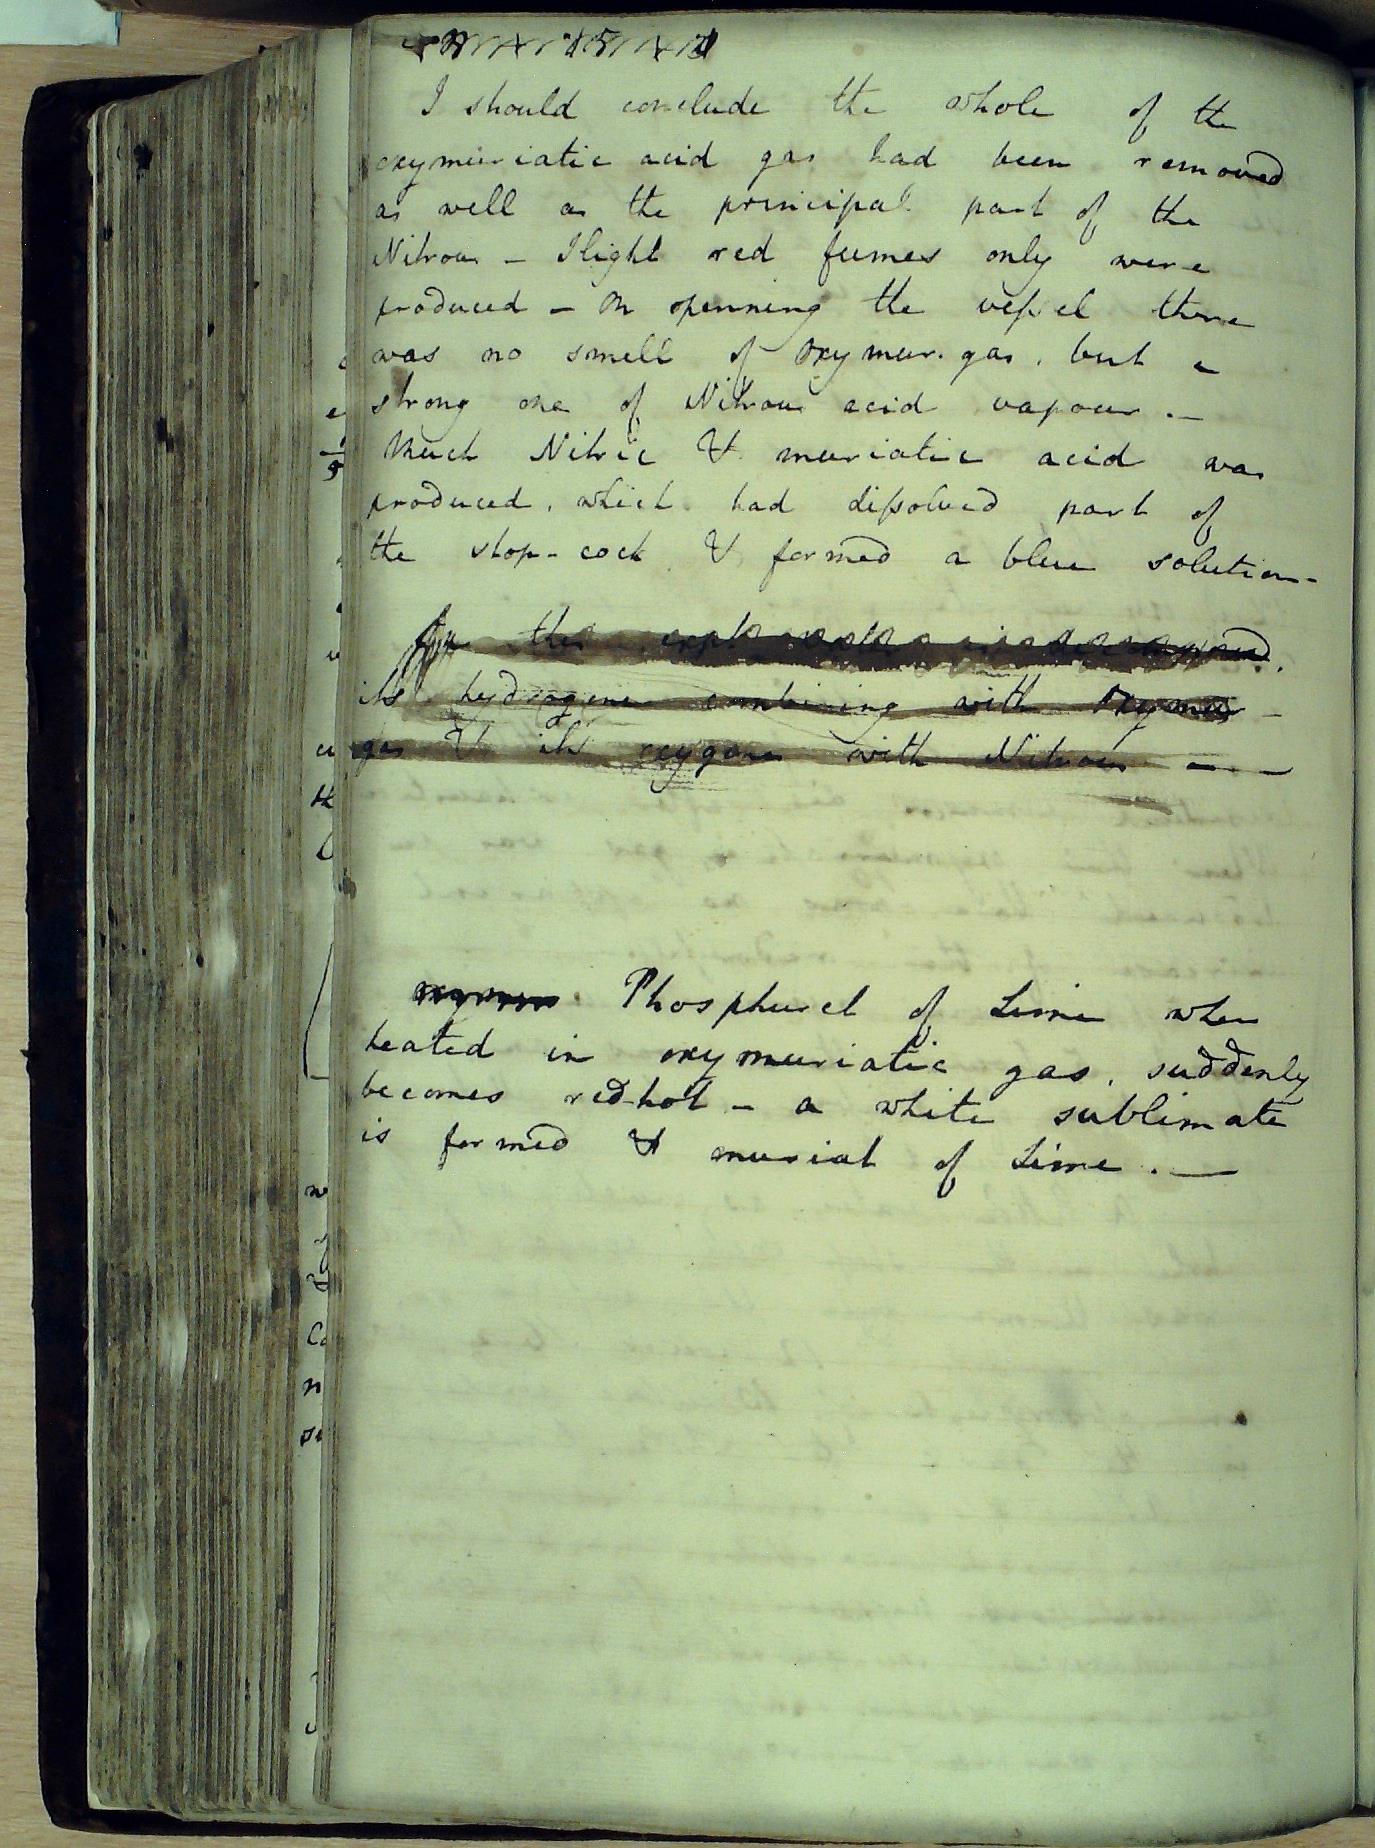 I should conclude the whole of the
oxymuriatic acid gas had been removed
as well as the principal part of the
Nitrous - Slight red fumes only were
produced - On openning the vessel there
was no smell of oxymur. gas. but a
strong one of Nitrous acid vapour. -
Much Nitric & muriatic acid was
produced. which had dissolved part of
the stop-cock & formed a blue solution -
In this
its hydrogene combining with oxymur
gas & its oxygene with Nitrous - -
Phosphuret of Lime when
heated in oxymuriatic gas. suddenly
becomes red-hot - a white sublimate
is formed & muriat of Lime. -